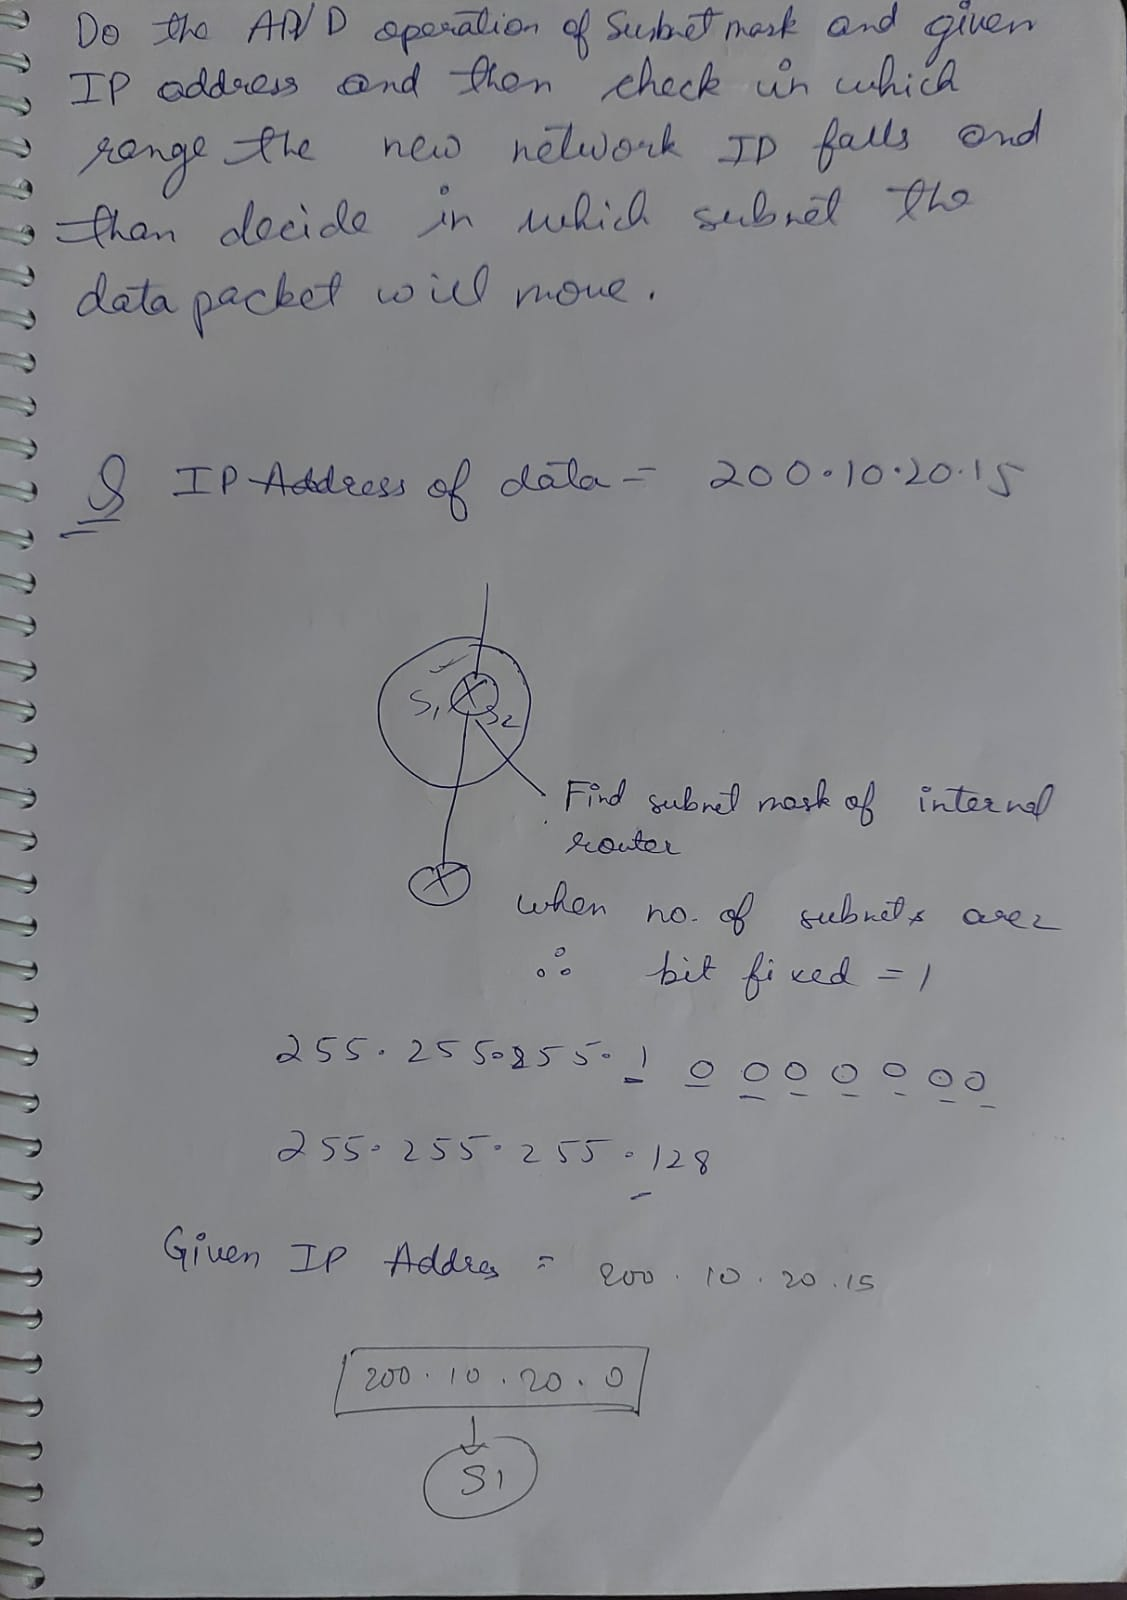 Do the AND operation of Subnet mask and given
IP address and then check in which
range the new network ID falls and
then decide in which subnet the
data packet will move.
Q IP Address of data = 200.10.20.15
S1 S2
Find subnet mask of internal
router
when no. of subnets are 2
∴ bit fixed = 1
255.255.255.1 0 0 0 0 0 0 0
255.255.255.128
Given IP Addres = 200.10.20.15
200.10.20.0
S1